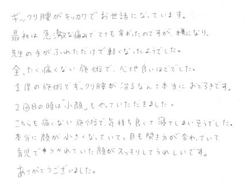 ギックリ腰がキッカケでお世話になっています。
最初は急激な痛みでとても辛れたのですが、横になり、
先生の手がふれただけで軽くなったようでした。
全、たく痛くない施術で、心地良いほどでした。
1度の施術でギックリ腰が治るなんて本当におどろきです。
2回目の時は"小顔"もやっていただきました。
こちらも痛くない施術で、気持ち良くて寝てしまいそうでした。
本当に顔が小さくなっていて、目も開き方が変わっていて
育児でつかれていた顔がスッキリしてうれしいです。
ありがとうございました。